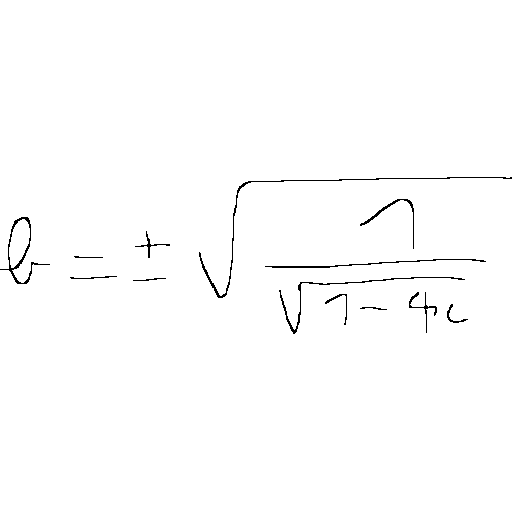 b = ± √(1/√(1 - 4c))